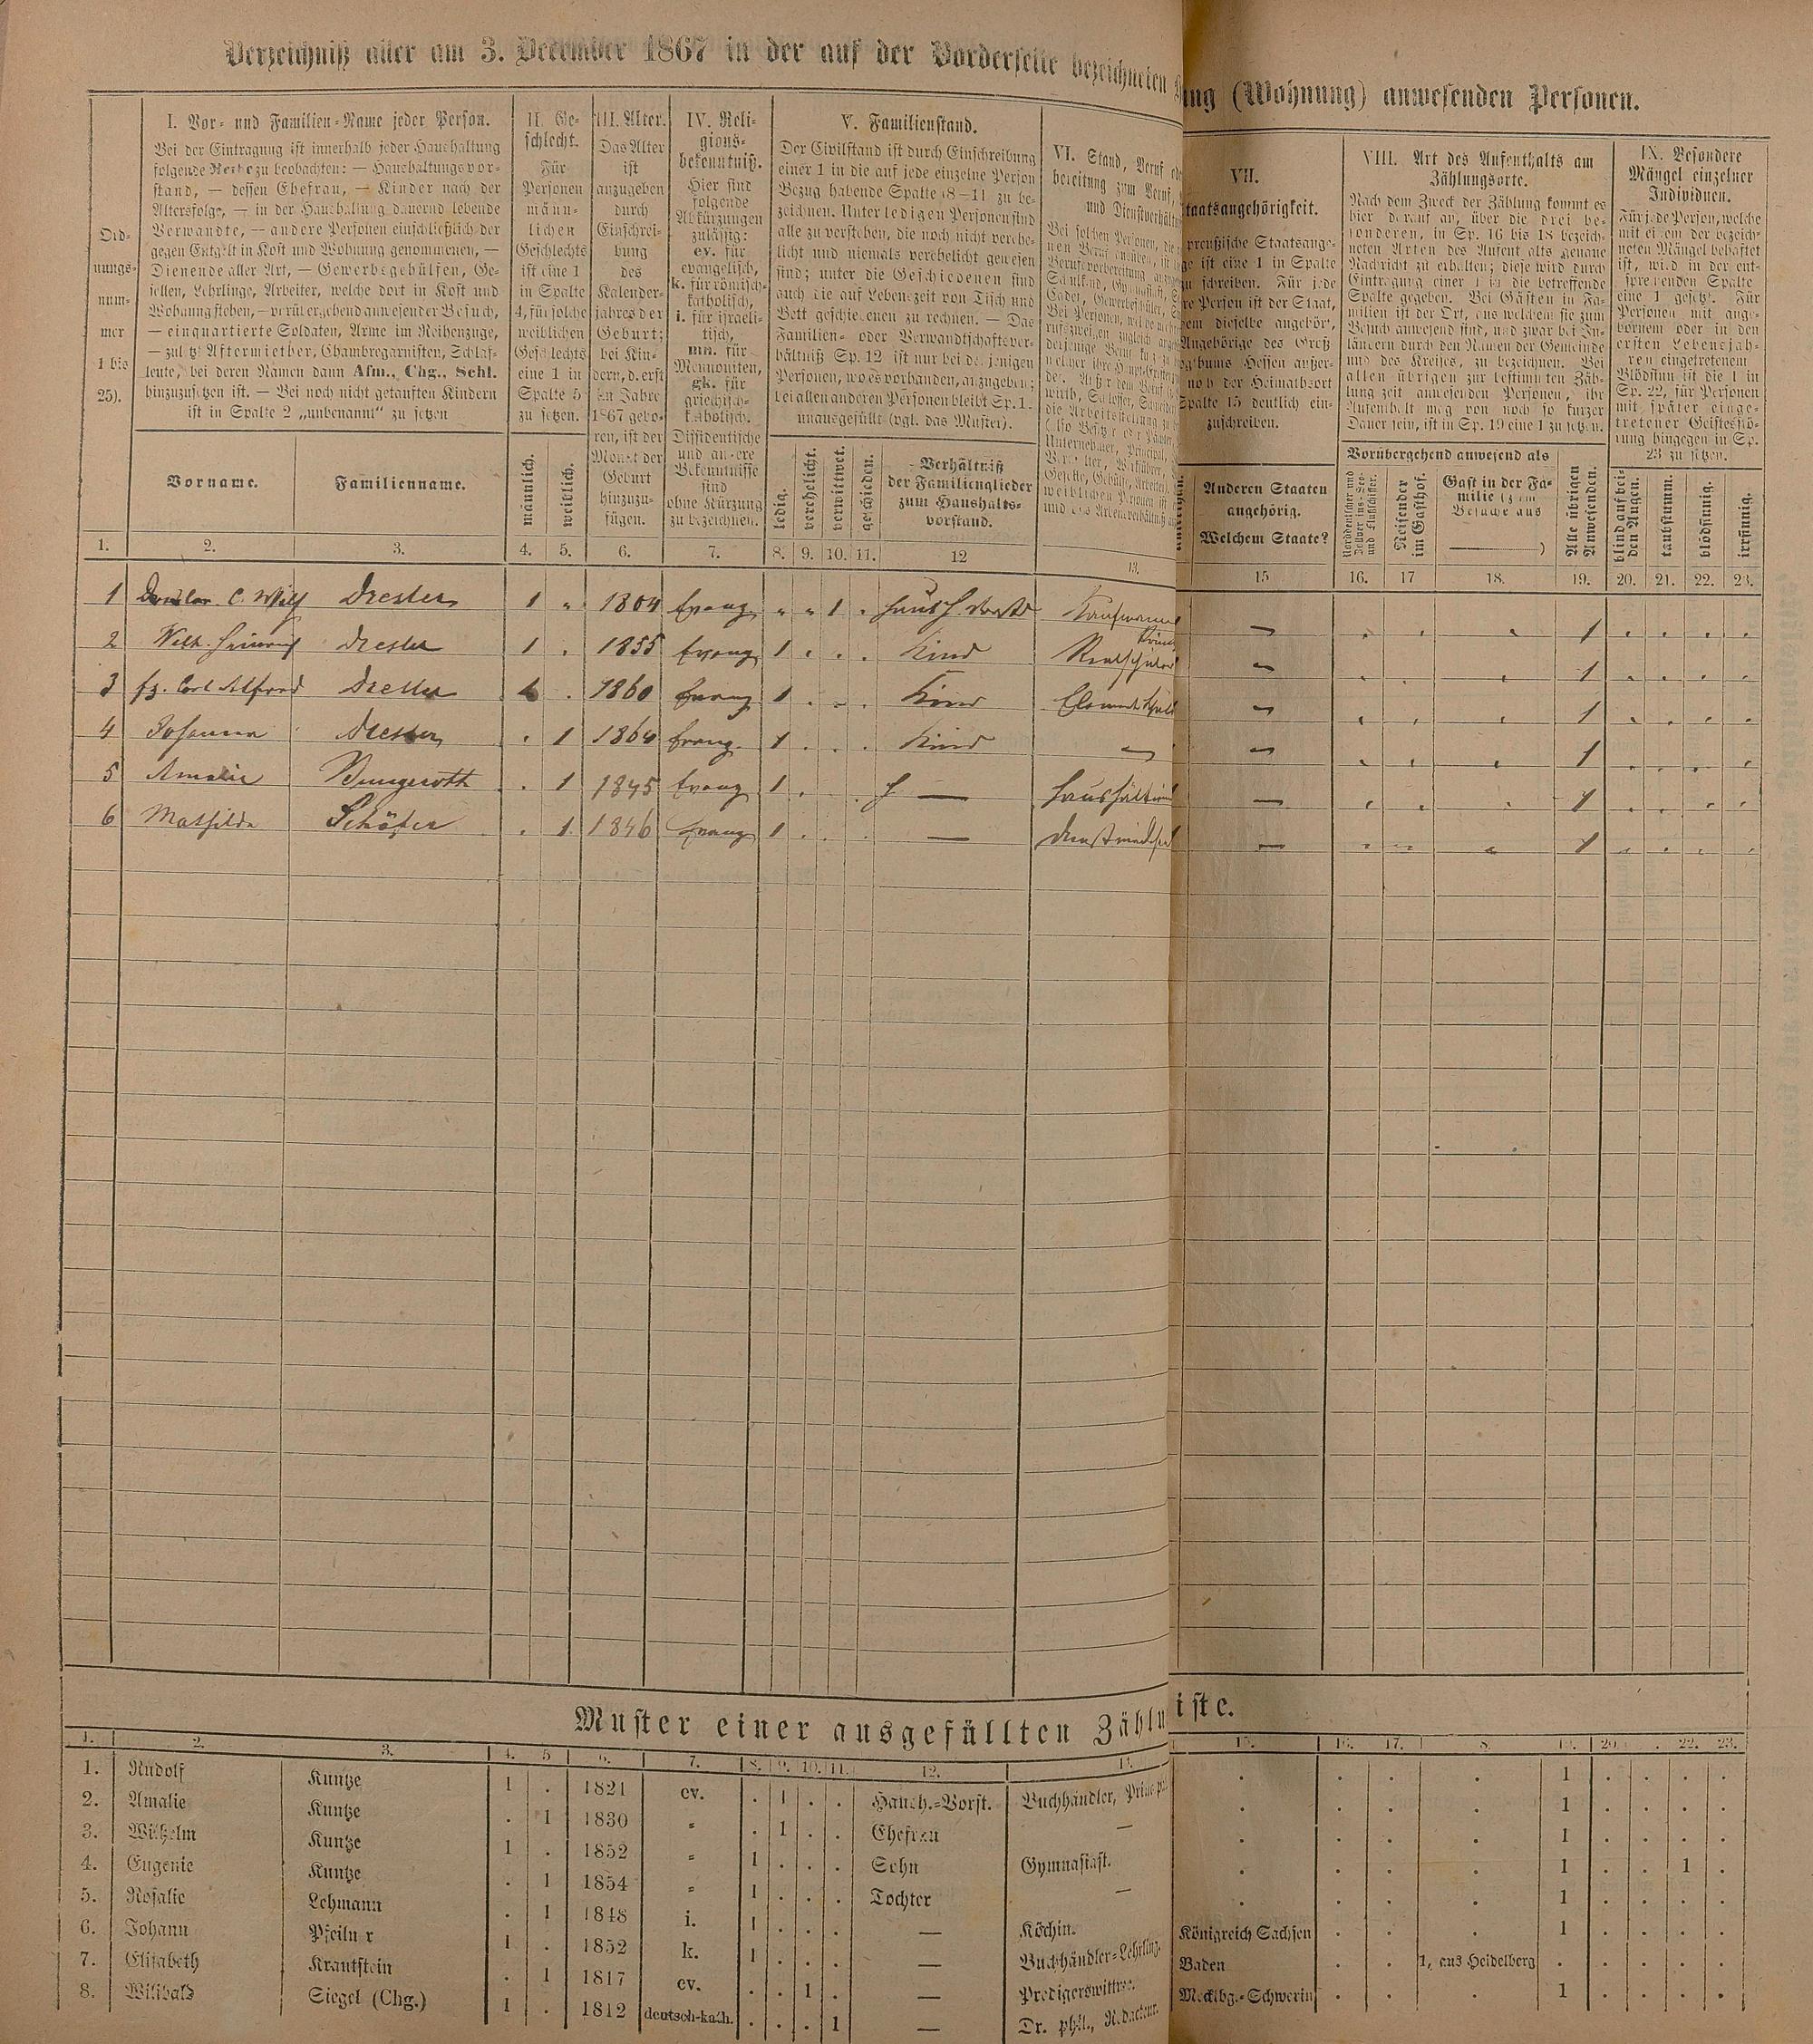 Verzeichniß aller am 3. December 1867 in der auf der Vorderseite bezeichneten
ung (Wohnung) anwesenden Personen.
Ord-
nungs-
num-
mer
1 bis
25).
I. Vor- und Familien-Name jeder Person.
Bei der Eintragung ist innerhalb jeder Haushaltung
folgende Reihe zu beobachten: — Haushaltungsvor-
stand, — dessen Ehefrau, — Kinder nach der
Altersfolge, — in der Haushaltung dauernd lebende
Verwandte, — andere Personen einschließlich der
gegen Entgelt in Kost und Wohnung genommenen, —
Dienende aller Art, — Gewerbsgehülfen, Ge-
sellen, Lehrlinge, Arbeiter, welche dort in Kost und
Wohnung stehen, — vorübergehend anwesender Besuch,
— einquartierte Soldaten, Arme im Reihenzuge,
— zuletzt Aftermiether, Chambregarnisten, Schlaf-
leute, bei deren Namen dann Afm., Chg., Schl.
hinzuzusetzen ist. — Bei noch nicht getauften Kindern
ist in Spalte 2 „unbenannt" zu setzen
Vorname.
Familienname.
II. Ge-
schlecht.
Für
Personen
männ-
lichen
Geschlechts
ist eine 1
in Spalte
4, für solche
weiblichen
Geschlechts
eine 1 in
Spalte 5
zu setzen.
männlich.
weiblich.
III. Alter.
Das Alter
ist
anzugeben
durch
Einschrei-
bung
des
Kalender-
jahres der
Geburt;
bei Kin-
dern, d. erst
im Jahre
1867 gebo-
ren, ist der
Monat der
Geburt
hinzuzu-
fügen.
IV. Reli-
gions-
bekenntniß.
Hier sind
folgende
Abkürzungen
zulässig:
ev. für
evangelisch,
k. für römisch-
katholisch,
i. für israeli-
tisch,
mn. für
Mennoniten,
gk. für
griechisch-
katholisch.
Dissidentische
und andere
Bekenntnisse
sind
ohne Kürzung
zu bezeichnen.
V. Familienstand.
Der Civilstand ist durch Einschreibung
einer 1 in die auf jede einzelne Person
Bezug habende Spalte (8–11) zu be-
zeichnen. Unter ledigen Personen sind
alle zu verstehen, die noch nicht verehe-
licht und niemals verehelicht gewesen
sind; unter die Geschiedenen sind
auch die auf Lebenszeit von Tisch und
Bett geschiedenen zu rechnen. — Das
Familien- oder Verwandtschaftsver-
hältniß Sp. 12 ist nur bei denjenigen
Personen, wo es vorhanden, anzugeben;
bei allen anderen Personen bleibt Sp. 12
unausgefüllt (vgl. das Muster).
ledig.
verehelicht.
verwittwet.
geschieden.
Verhältniß
der Familienglieder
zum Haushalts-
vorstand.
VI. Stand, Beruf
bereitung zum Beruf,
und Dienstverhält
VII.
taatsangehörigkeit.
preußische Staatsange-
ge ist eine 1 in Spalte
zu schreiben. Für jede
re Person ist der Staat,
em dieselbe angehört,
Angehörige des Groß
zogthums Hessen außer-
noch der Heimathsort
Spalte 15 deutlich ein-
zuschreiben.
Anderen Staaten
angehörig.
Welchem Staate?
VIII. Art des Aufenthalts am
Zählungsorte.
Nach dem Zweck der Zählung kommt es
hier darauf an, über die drei be-
sonderen, in Sp. 16 bis 18 bezeich-
neten Arten des Aufenthalts genaue
Nachricht zu erhalten; diese wird durch
Eintragung einer 1 in die betreffende
Spalte gegeben. Bei Gästen in Fa-
milien ist der Ort, aus welchem sie zum
Besuch anwesend sind, und zwar bei In-
ländern durch den Namen der Gemeinde
und des Kreises, zu bezeichnen. Bei
allen übrigen zur bestimmten Zäh-
lungszeit anwesenden Personen, ihr
Aufenthalt mag von noch so kurzer
Dauer sein, ist in Sp. 19 eine 1 zu setzen.
Vorübergehend anwesend als
Norddeutscher und
Zollvereins-See-
und Flußschiffer.
Reisender
im Gasthof.
Gast in der Fa-
milie (zum
Besuche aus
)
Alle übrigen
Anwesenden.
IX. Besondere
Mängel einzelner
Individuen.
Für jede Person, welche
mit einem der bezeich-
neten Mängel behaftet
ist, wird in der ent-
sprechenden Spalte
eine 1 gesetzt. Für
Personen mit ange-
bornem oder in den
ersten Lebensjah-
ren eingetretenem
Blödsinn ist die 1 in
Sp. 22, für Personen
mit später einge-
tretener Geistesstö-
rung hingegen in Sp.
23 zu setzen.
blind auf bei-
den Augen.
taubstumm.
blödsinnig.
irrsinnig.
1. 2. 3. 4. 5. 6. 7. 8. 9. 10. 11. 12 13. 15 16. 17 18. 19. 20. 21. 22. 23.
1 C. Wilh Dresler 1 „ 1804 Evang „ „ 1 . Kaufmann — 1
2 Wilh. Heinrich Dresler 1 . 1855 Evang 1 . . . Kind Realschüler — 1
3 Fz. Carl Alfred Dresler 1 . 1860 Evang 1 . . . Kind — 1
4 Johanna Dresler . 1 1864 Evang. 1 . . . Kind — — 1
5 Amalie Bungeroth . 1 1845 Evang 1 . . . — Haushälterin — 1
6 Mathilde Schäfer . 1 1846 Evang 1 . . . — — 1
Muster einer ausgefüllten Zählu
iste.
1. 2. 3. 4. 5 6. 7. 8. 9. 10. 11. 12. 13. 15. 16. 17. 8. 19. 20. . 22. 23.
1. Rudolf Kuntze 1 . 1821 ev. . 1 . . Haush.-Vorst. Buchhändler, Prinzipal . . . . 1 . . . .
2. Amalie Kuntze . 1 1830 „ . 1 . . Ehefrau — . . . . 1 . . . .
3. Wilhelm Kuntze 1 . 1852 „ 1 . . . Sohn Gymnasiast. . . . . 1 . . . .
4. Eugenie Kuntze . 1 1854 „ 1 . . . Tochter — . . . . 1 . . 1 .
5. Rosalie Lehmann . 1 1848 i. 1 . . . — Köchin. . . . . 1 . . . .
6. Johann Pfeilner 1 . 1852 k. 1 . . . — Buchhändler-Lehrling. Königreich Sachsen . . . 1 . . . .
7. Elisabeth Krautstein . 1 1817 ev. . . 1 . — Predigerswittwe. Baden . . 1, aus Heidelberg . . . . .
8. Wilibald Siegel (Chg.) 1 . 1812 deutsch-kath. . . . 1 — Dr. phil., Redacteur. Mecklbg.-Schwerin . . . 1 . . . .